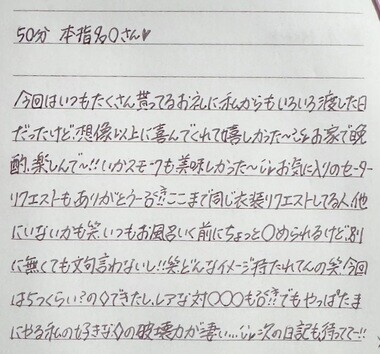 50分 本指名〇さん♥
今回はいつもたくさん貰ってるお礼に私からもいろいろ渡した日
だったけど、想像以上に喜んでくれて嬉しかった〜 お家で晩
酌、楽しんで〜!! いかスモークも美味しかった〜 お気に入りのセーター
リクエストもありがとう〜 ここまで同じ衣装リクエストしてる人、他
にいないかも笑 いつもお風呂いく前にちょっと〇められるけど、別
に無くても文句言わないし!!笑 どんなイメージ持たれてんの笑 今回
は5つくらい?の◇できたし、レアな対〇〇〇も でもやっぱたま
にやる私の好きな◇の破壊力が凄い... 次の日記も待ってて〜!!